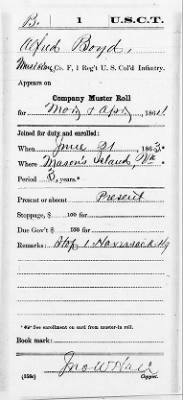 B. 1 U.S.C.T.
Alfred Boyd,
Co. F, 1 Reg't U. S. Col'd Infantry.
Appears on
Company Muster Roll
for 1864.
Joined for duty and enrolled:
When June 21, 1863.
Where Mason's Island, Va.
Period 3 years.*
Present or absent Present
Stoppage, $ 100 for
Due Gov't $ 100 for
Remarks: Stop 1 Haversack
* See enrollment on card from muster-in roll.
Book mark:
Jno W Hall
(358c) Copyist.